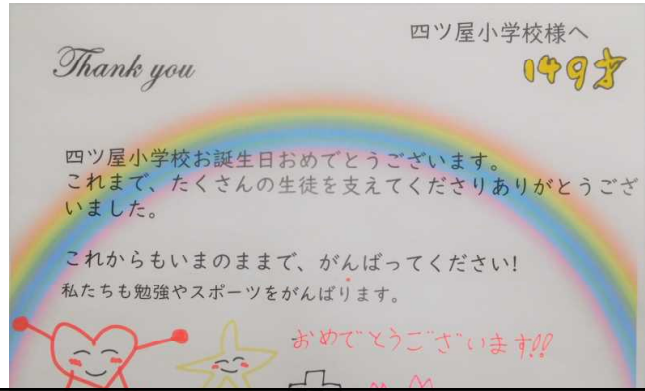 四ツ屋小学校様へ
Thank you
149才
四ツ屋小学校お誕生日おめでとうございます。
これまで、たくさんの生徒を支えてくださりありがとうござ
いました。
これからもいまのままで、がんばってください!
私たちも勉強やスポーツをがんばります。
おめでとうございます!!